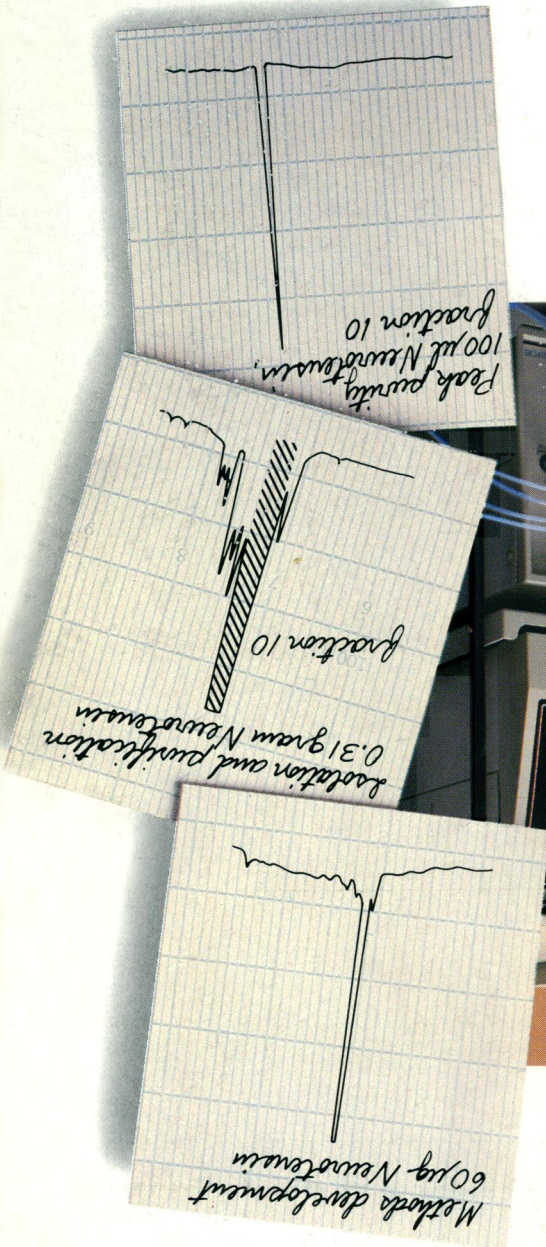 Methods development
60 µg Neurotensin
Isolation and purification
0.31 gram Neurotensin
fraction 10
6
7
8
9
Peak purity
100 µl Neurotensin,
fraction 10